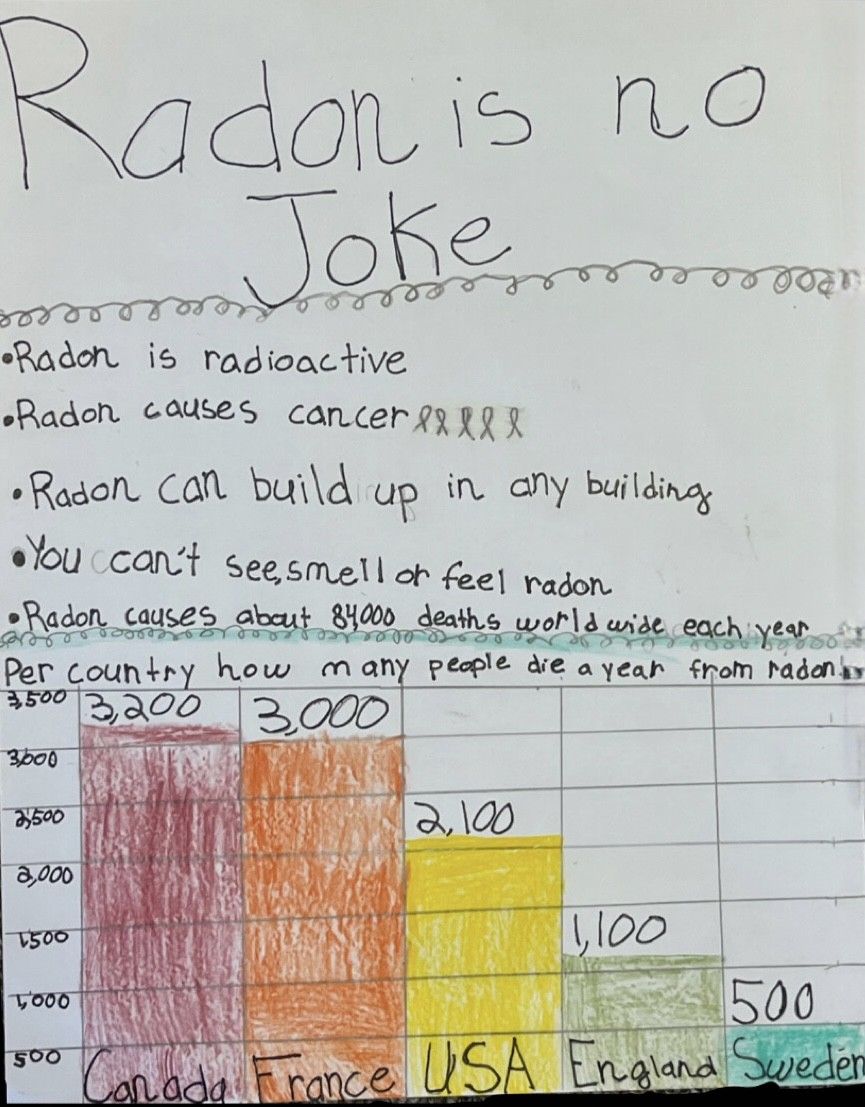 Radon is no
Joke
•Radon is radioactive
•Radon causes cancer
•Radon can build up in any building
•You can't see, smell or feel radon
•Radon causes about 84000 deaths world wide each year
Per country how many people die a year from radon!
3,500 3,200 3,000
3,000
2,500 2,100
2,000
1,500 1,100
1,000 500
500 Canada France USA England Sweden